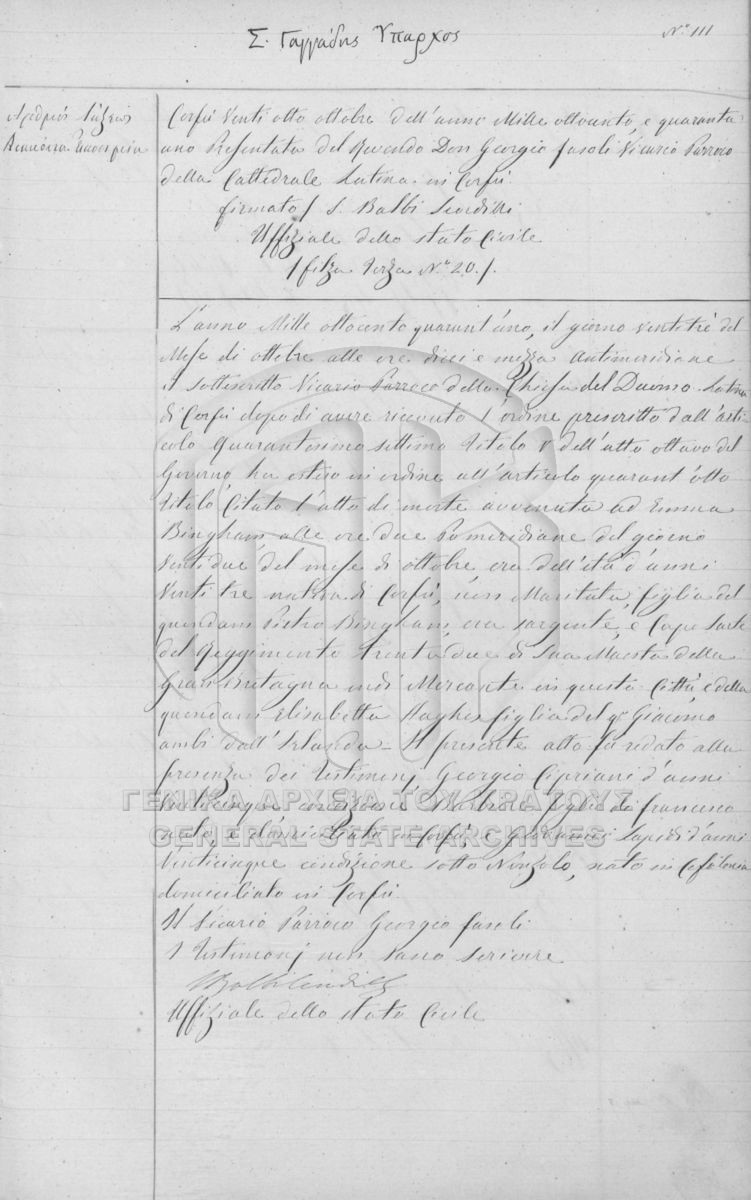 Σ. Γαγγάδης Ύπαρχος
Nº 111
Αριθμός τάξεως
Διακόσια
Corfù Venti otto ottobre dell'anno Mille ottocento, e quaranta
uno Presentata del Rvendo Don Georgio Fasoli Vicario Parroco
della Cattedrale Latina in Corfù.
firmato / S. Balbi
Uffiziale dello stato Civile
/ filza terza Nº 20. /
L'anno Mille ottocento quarant'uno, il giorno ventitrè del
Mese di ottobre alle ore dieci e mezza antimeridiane
il sottoscritto Vicario Parroco della Chiesa del Duomo Latina
di Corfù dopo di avere ricevuto l'ordine prescritto dall'arti-
colo quarantesimo settimo titolo V dell'atto ottavo del
Governo, ha esteso in ordine all'articolo quarant'otto
titolo Citato l'atto di morte avvenuta ad Emma
Bingham, alle ore due Pomeridiane del giorno
venti due, del mese di ottobre, era dell'età d'anni
Venti tre nativa di Corfù, non Maritata, figlia del
quondam Pietro Bingham, era sargente, e Capo Sarte
del Reggimento trenta due di Sua Maestà della
Gran Bretagna indi Mercante in questa Città, e della
quondam Elisabetta Haghes figlia del qm Giacomo
ambi dall'Irlanda - Il presente atto fù redato alla
presenza dei Testimonj Georgio Cipriani d'anni
condizione figlio di Francesco
nato, e domiciliato in Corfù, e d'anni
Venticinque condizione sotto Nonzolo, nato in Cefalonia
domiciliato in Corfù.
Il Vicario Parroco Georgio Fasoli
I Testimonj non sano scrivere
Uffiziale dello stato Civile
ΓΕΝΙΚΑ ΑΡΧΕΙΑ ΤΟΥ ΚΡΑΤΟΥΣ
GENERAL STATE ARCHIVES